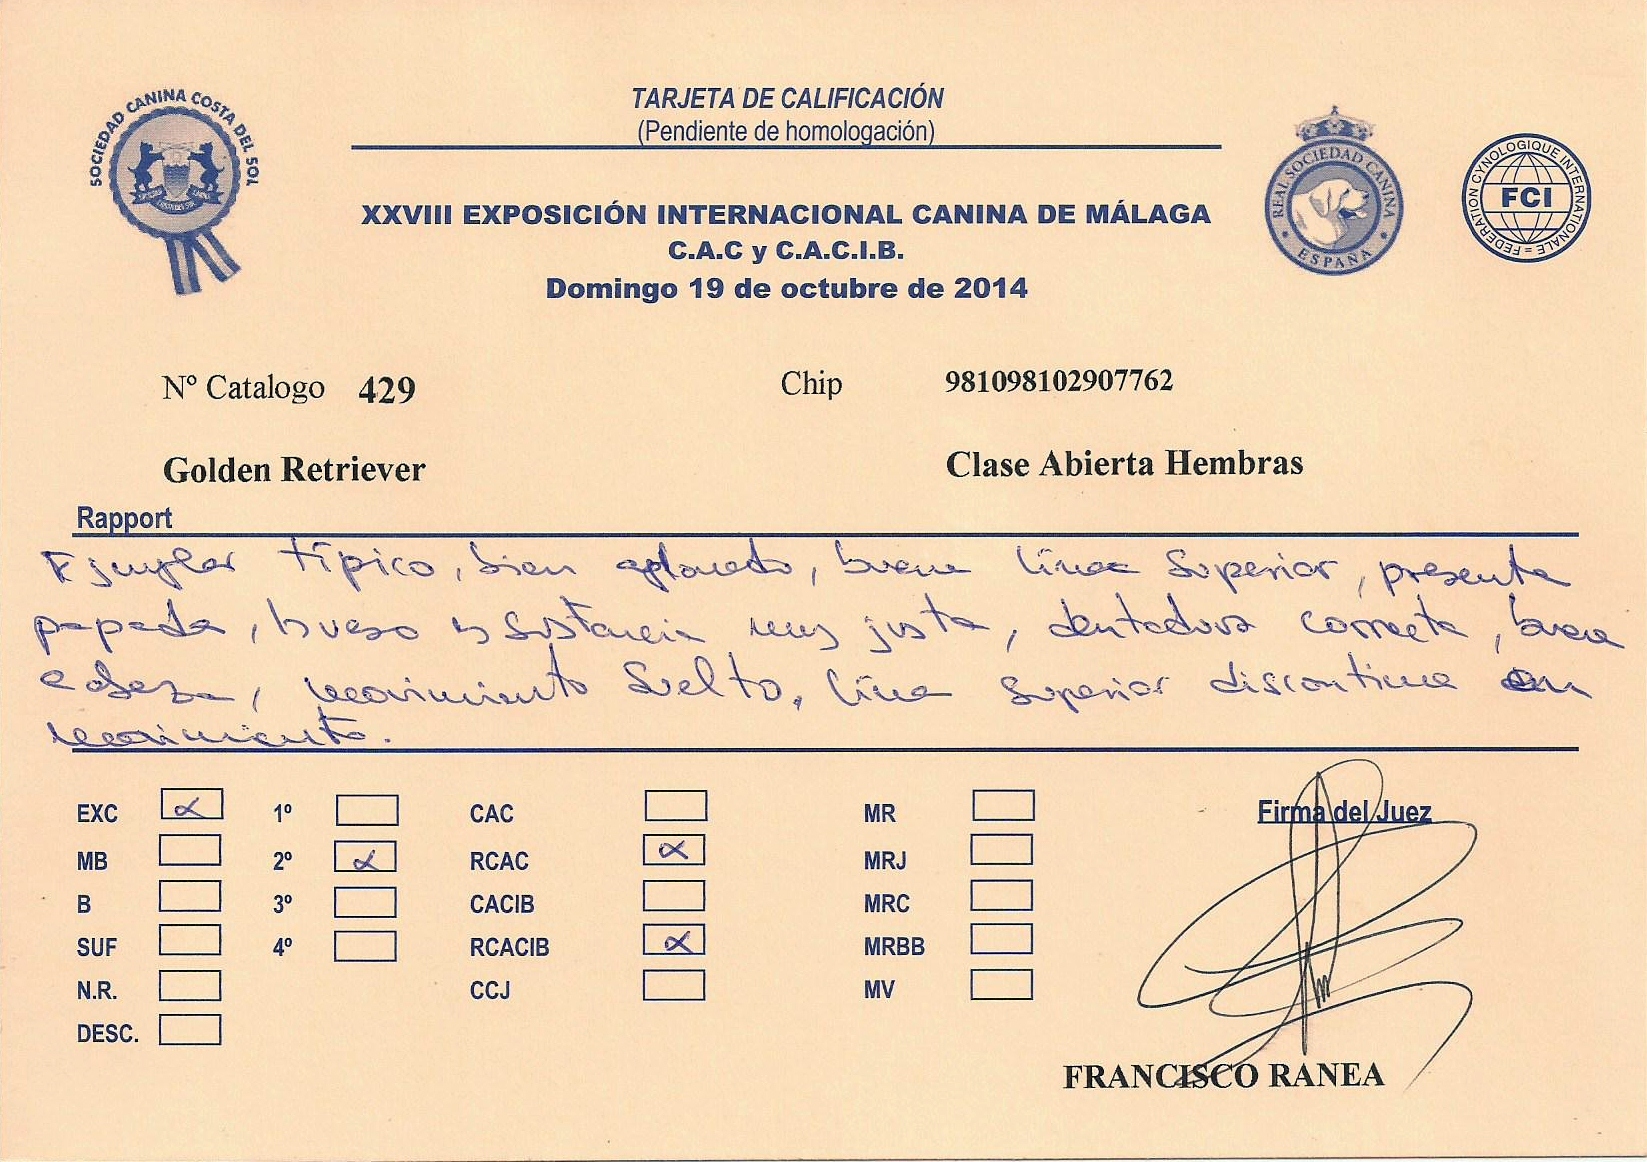 SOCIEDAD CANINA COSTA DEL SOL
TARJETA DE CALIFICACIÓN
(Pendiente de homologación)
REAL SOCIEDAD CANINA
ESPAÑA
FEDERATION CYNOLOGIQUE INTERNATIONALE
FCI
XXVIII EXPOSICIÓN INTERNACIONAL CANINA DE MÁLAGA
C.A.C y C.A.C.I.B.
Domingo 19 de octubre de 2014
Nº Catalogo 429 Chip 981098102907762
Golden Retriever Clase Abierta Hembras
Rapport
Ejemplar típico, bien aplomado, buena línea superior, presenta
papada, hueso y sustancia muy justa, dentadura correcta, buena
cabeza, movimiento suelto, línea superior discontinua en
movimiento.
EXC x 1º CAC MR Firma del Juez
MB 2º x RCAC x MRJ
B 3º CACIB MRC
SUF 4º RCACIB x MRBB
N.R. CCJ MV
DESC.
FRANCISCO RANEA